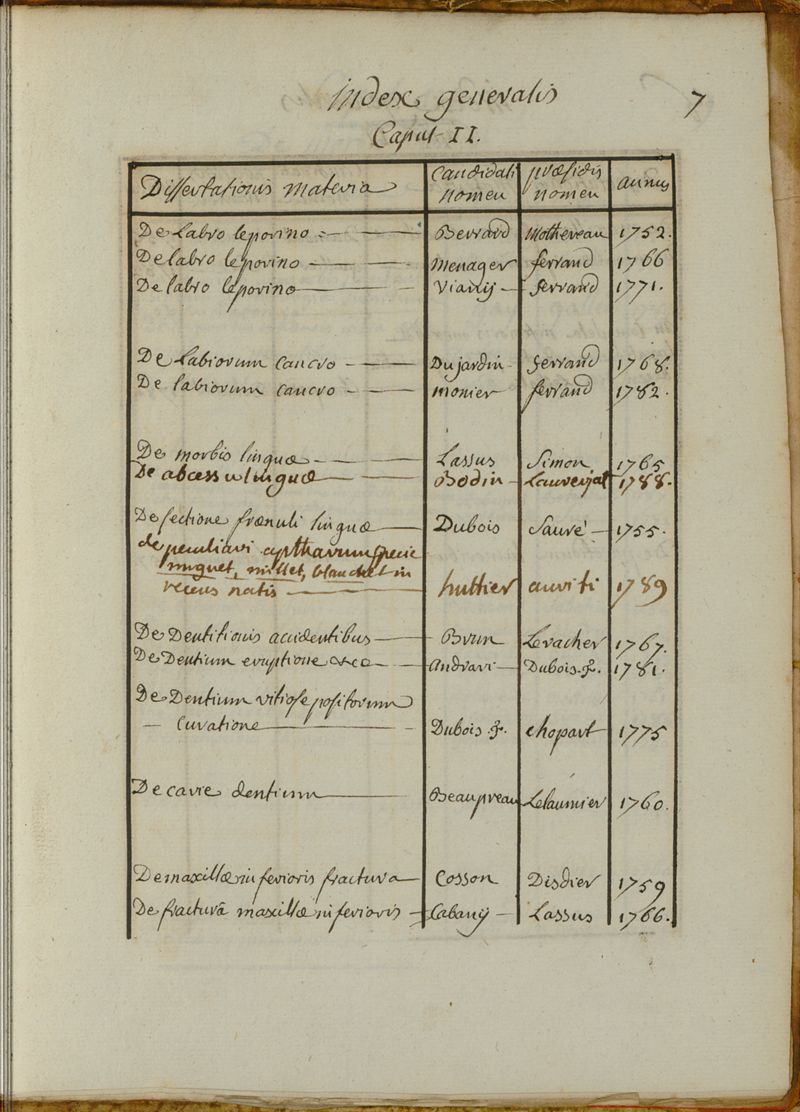 Index generalis 7
Caput II.
Dissertationis materia Candidati nomen præsidis nomen annus
De Labro leporino Berrard Mothereau 1752.
De labro leporino Menager ferrand 1766
De labro leporino Vianij ferrand 1771.
De Labiorum Cancro Dujardin ferrand 1768.
De labiorum cancro monier ferrand 1782.
De morbis linguæ Lassus Simon 1765
De abcessu linguæ Bodin Lauverjat 1788.
De sectione frænuli linguæ Dubois Sauré 1755.
de peculiari aphtharum specie
muguet, millet, blanchet in
recens natis huttier auviti 1789
De Dentitionis accidentibus Brun Levacher 1767.
De Dentium eruptione Andravi Dubois f. 1781.
De Dentium vitiose positorum
Curatione Dubois f. chopart 1775
De carie dentium Beaupreau Lelaumier 1760.
De maxillæ inferioris fractura Cosson Disdier 1759
De fracturâ maxillæ inferioris Cabanij Lassus 1766.